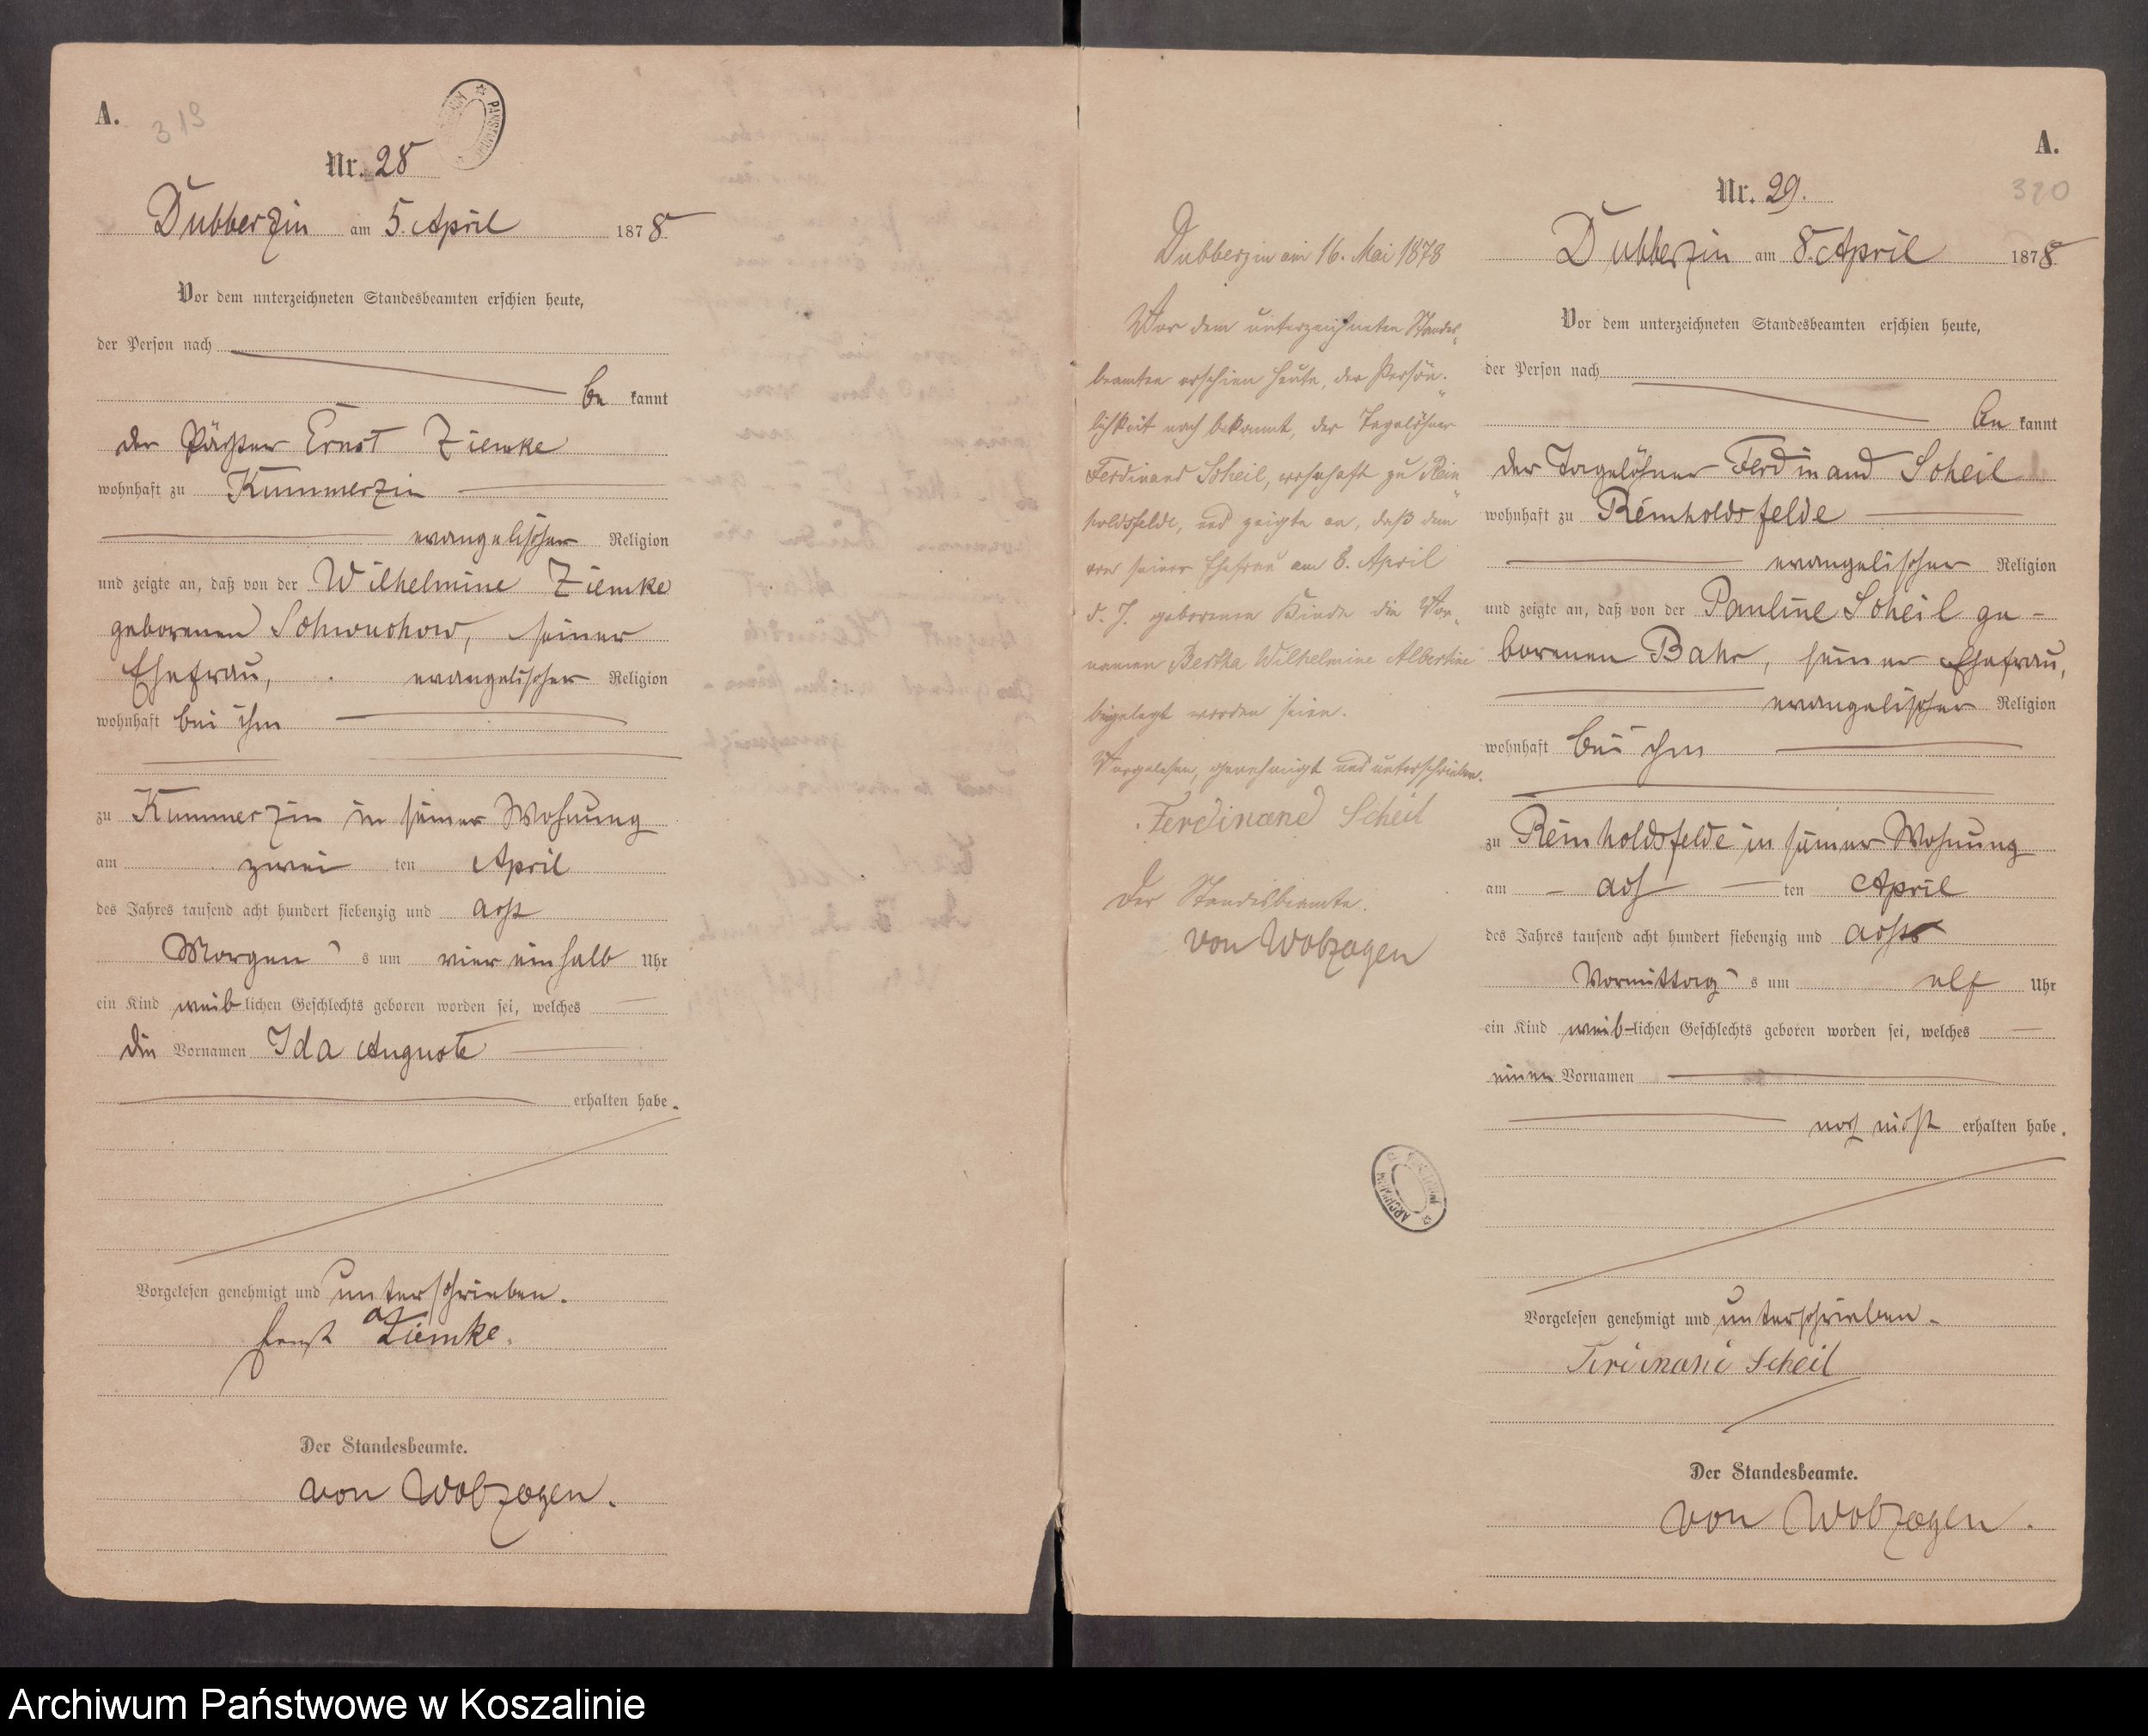 A.
319
Nr. 28
Dubberzin am 5. April 1878
Vor dem unterzeichneten Standesbeamten erschien heute,
der Person nach
be kannt
der Pächter Ernst Ziemke
wohnhaft zu Kummerzin
evangelischer Religion
und zeigte an, daß von der Wilhelmine Ziemke
geborenen Schwuchow, seiner
Ehefrau, evangelischer Religion
wohnhaft bei ihm
zu Kummerzin in seiner Wohnung
am zwei ten April
des Jahres tausend acht hundert siebenzig und acht
Morgen s um viereinhalb Uhr
ein Kind weib lichen Geschlechts geboren worden sei, welches
die Vornamen Ida Auguste
erhalten habe.
Vorgelesen genehmigt und unterschrieben.
Ernst Ziemke.
Der Standesbeamte.
von Wobzogen.
Dubberzin am 16. Mai 1878
Vor dem unterzeichneten Standes-
beamten erschien heute, der Persön-
lichkeit nach bekannt, der Tagelöhner
Ferdinand Scheil, wohnhaft zu Rein-
holdsfelde, und zeigte an, daß dem
von seiner Ehefrau am 8. April
d. J. geborenen Kinde die Vor-
namen Bertha Wilhelmine Albertine
beigelegt worden seien.
Vorgelesen, genehmigt und unterschrieben.
Ferdinand Scheil
Der Standesbeamte.
von Wobzogen
A.
320
Nr. 29.
Dubberzin am 8. April 1878
Vor dem unterzeichneten Standesbeamten erschien heute,
der Person nach
be kannt
der Tagelöhner Ferdinand Scheil
wohnhaft zu Reinholdsfelde
evangelischer Religion
und zeigte an, daß von der Pauline Scheil ge-
borenen Bahr, seiner Ehefrau,
evangelischer Religion
wohnhaft bei ihm
zu Reinholdsfelde in seiner Wohnung
am ach ten April
des Jahres tausend acht hundert siebenzig und acht
Vormittag s um elf Uhr
ein Kind weib-lichen Geschlechts geboren worden sei, welches
einen Vornamen
noch nicht erhalten habe.
Vorgelesen genehmigt und unterschrieben.
Ferdinand Scheil
Der Standesbeamte.
von Wobzogen.
Archiwum Państwowe w Koszalinie